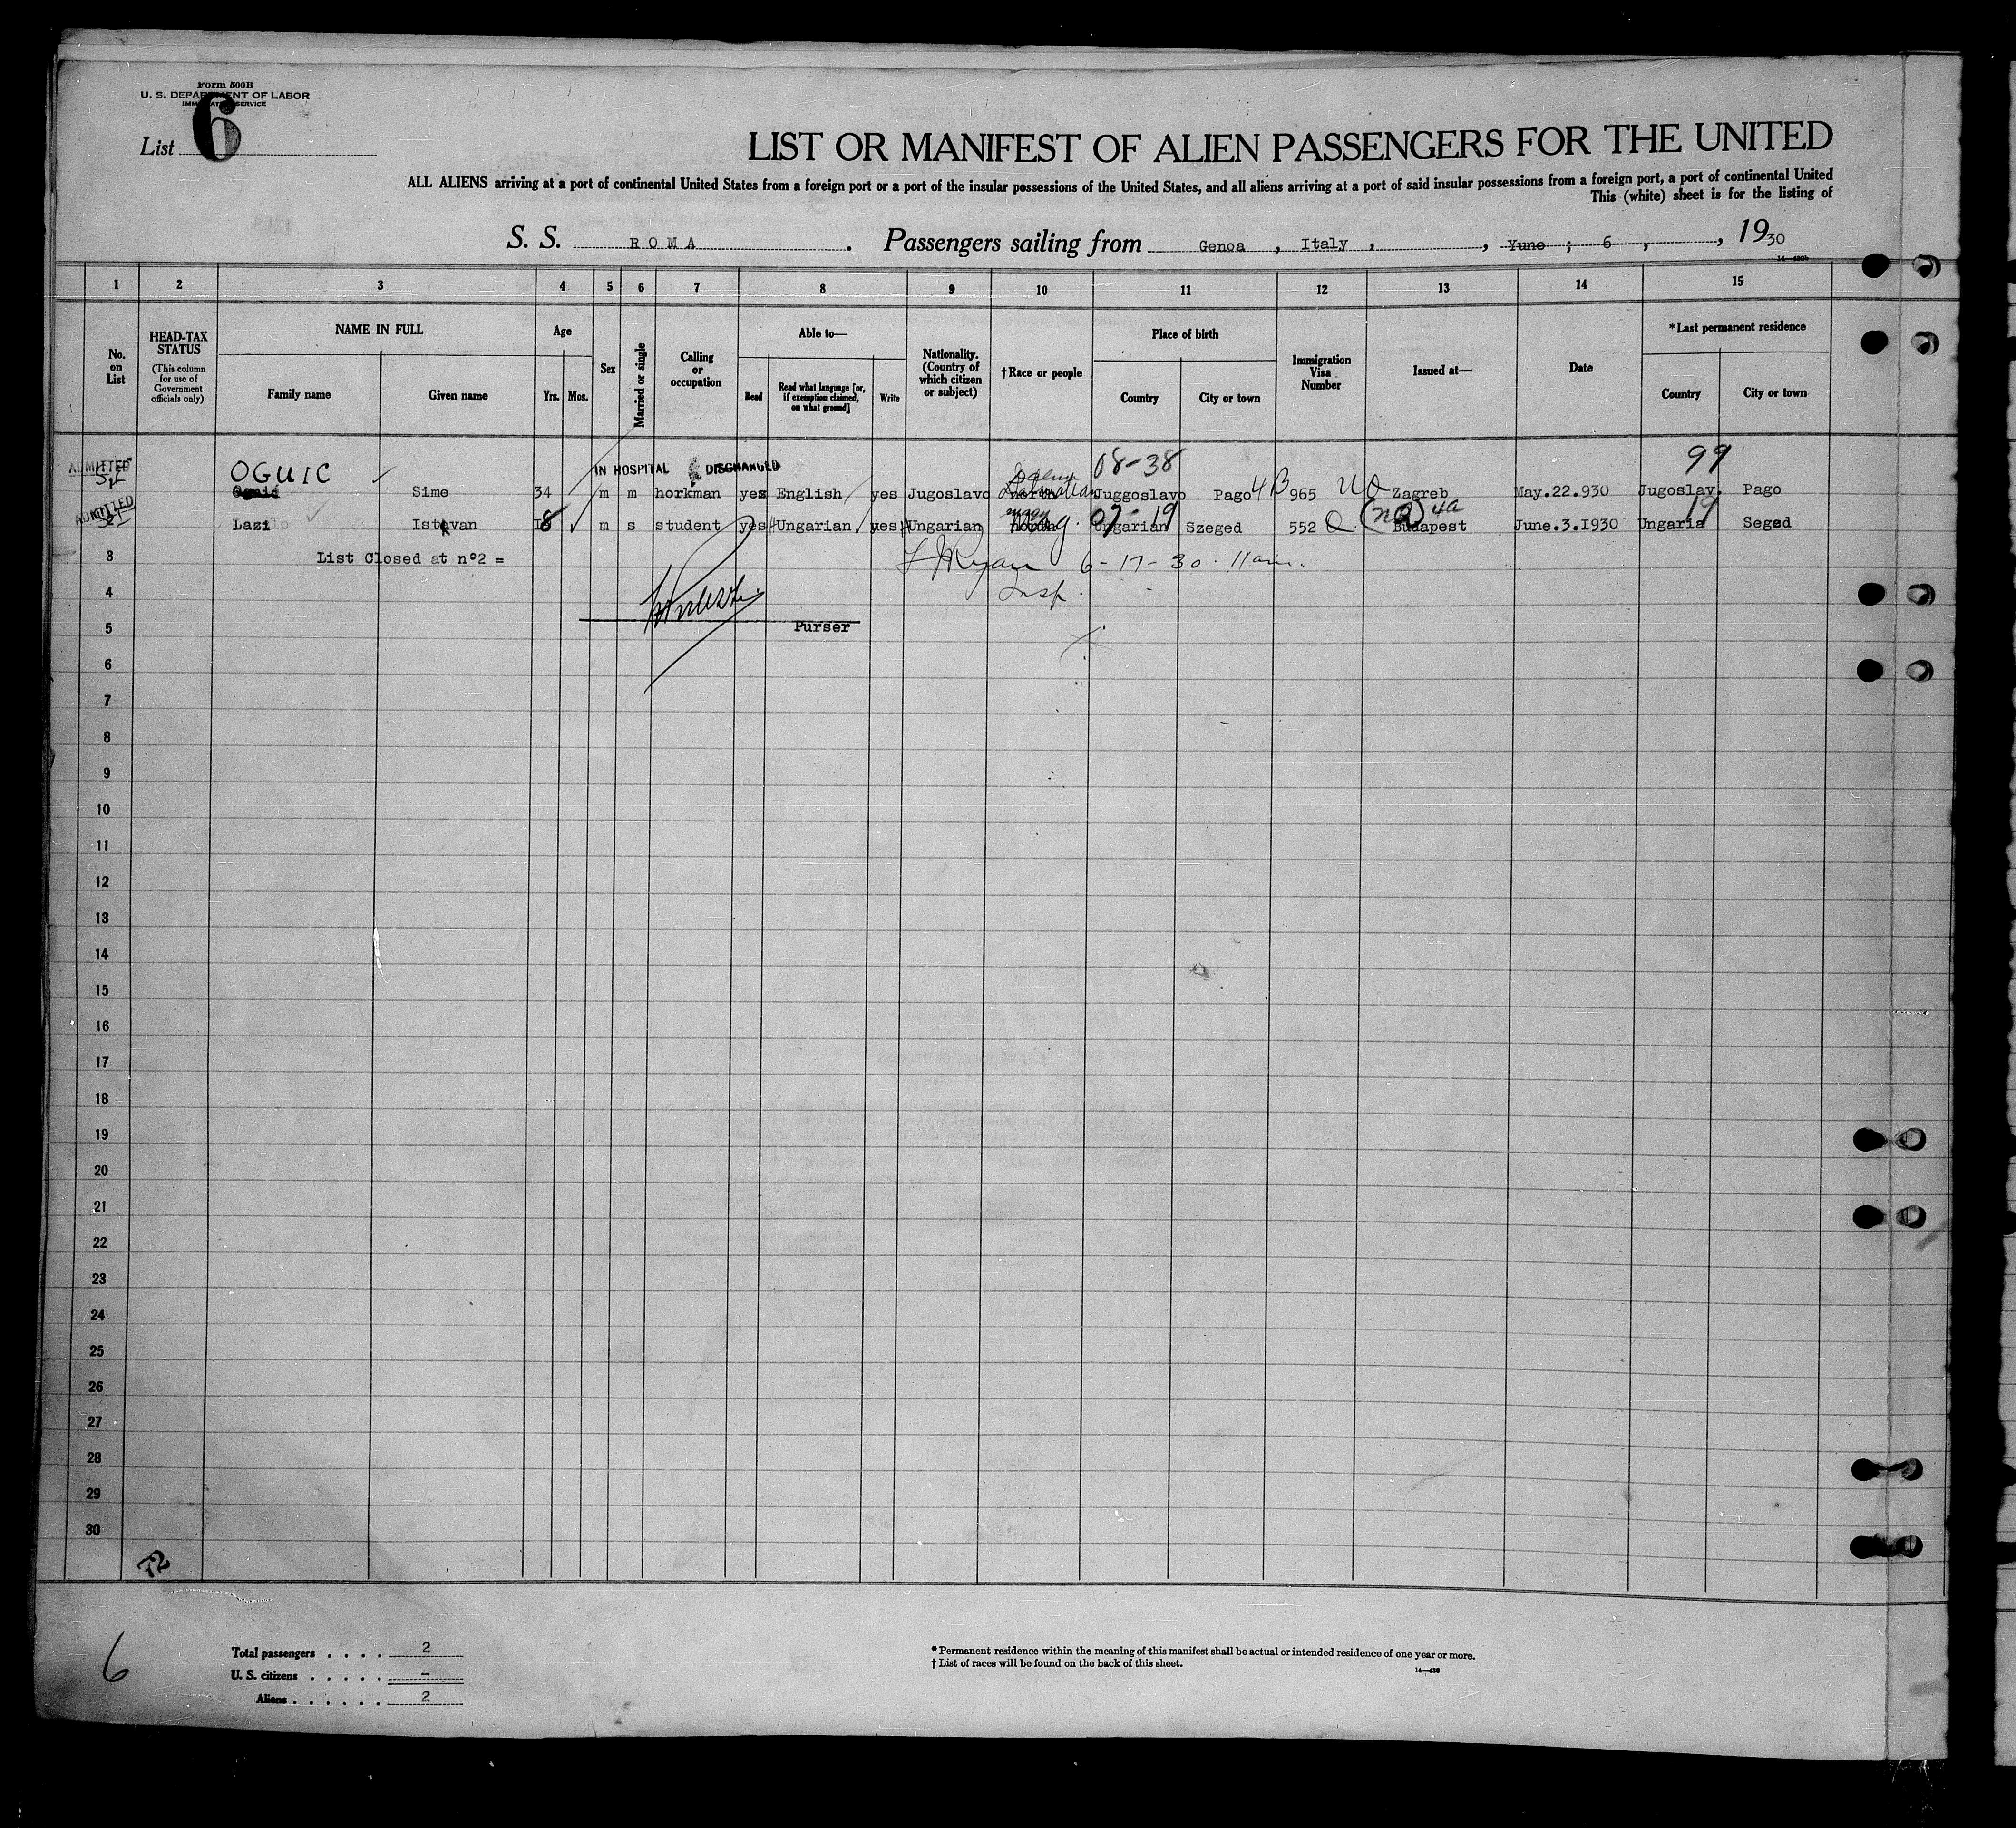 Form 500B
U. S. DEPARTMENT OF LABOR
IMMIGRATION SERVICE
List 6
LIST OR MANIFEST OF ALIEN PASSENGERS FOR THE UNITED
ALL ALIENS arriving at a port of continental United States from a foreign port or a port of the insular possessions of the United States, and all aliens arriving at a port of said insular possessions from a foreign port, a port of continental United
This (white) sheet is for the listing of
S. S. ROMA. Passengers sailing from Genoa, Italy, , Yune ; 6 , , 1930
1 2 3 4 5 6 7 8 9 10 11 12 13 14 15
No. on List
HEAD-TAX STATUS
(This column for use of Government officials only)
NAME IN FULL
Family name Given name
Age
Yrs. Mos.
Sex
Married or single
Calling or occupation
Able to—
Read
Read what language [or, if exemption claimed, on what ground]
Write
Nationality. (Country of which citizen or subject)
†Race or people
Place of birth
Country City or town
Immigration Visa Number
Issued at—
Date
*Last permanent residence
Country City or town
ADMITTED OGUIC IN HOSPITAL DISCHARGED 08-38 99
Sime 34 m m horkman yes English yes Jugoslavo Dalmatian Juggoslavo Pago 4B 965 Zagreb May.22.930 Jugoslav. Pago
ADMITTED Lazi Istvan 18 m s student yes Ungarian yes Ungarian Mag. 07-19 Ungarian Szeged 552 Q (NQ) 4a Budapest June.3.1930 Ungaria 19 Seged
3 List Closed at nº2 = Ryan 6-17-30. 11am.
4 Insp.
5 Purser
6
7
8
9
10
11
12
13
14
15
16
17
18
19
20
21
22
23
24
25
26
27
28
29
30
72
6
Total passengers . . . . 2
U. S. citizens . . . . . –
Aliens . . . . . . 2
* Permanent residence within the meaning of this manifest shall be actual or intended residence of one year or more.
† List of races will be found on the back of this sheet.